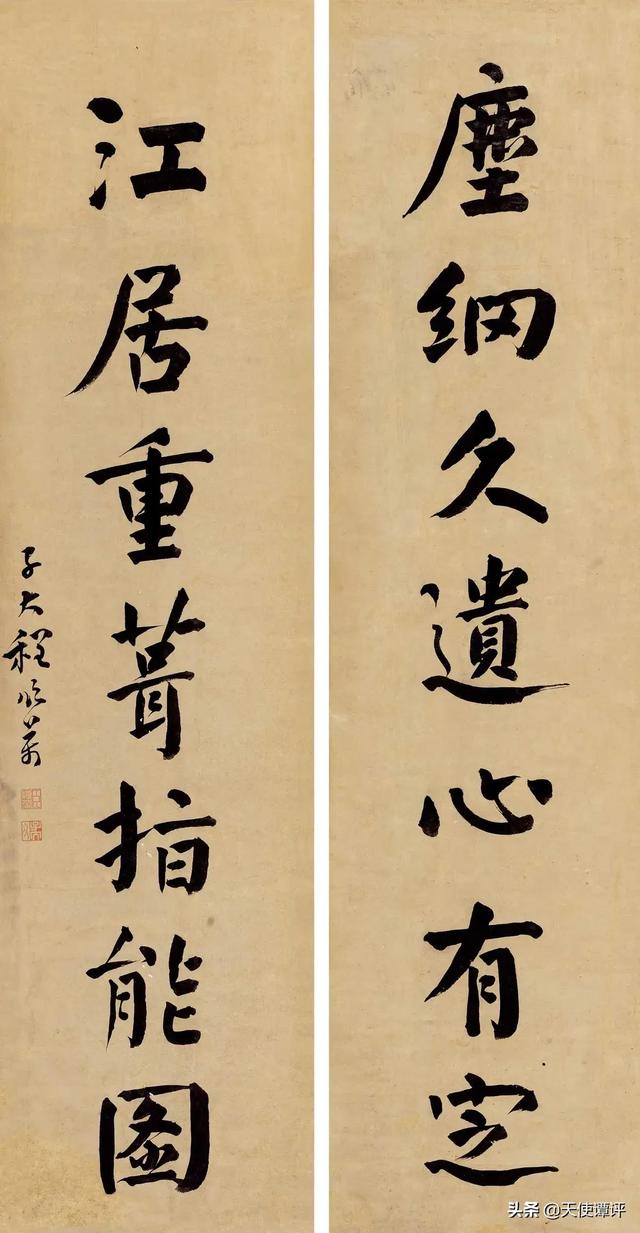 塵網久遺心有定
江居重葺指能圖
子大程頌萬
头条 @天使谭评